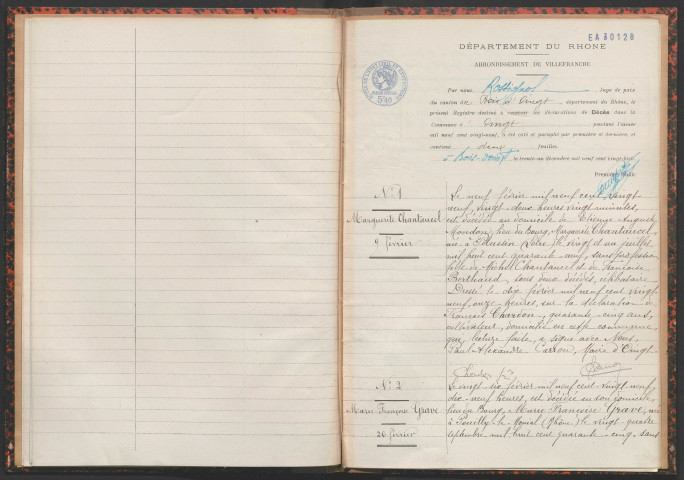 EA80128
DÉPARTEMENT DU RHÔNE
ARRONDISSEMENT DE VILLEFRANCHE
Par nous, Rossignol, Juge de paix
du canton du Bois d'Oingt, département du Rhône, le
présent Registre destiné à recevoir les déclarations de Décès dans la
Commune d'Oingt pendant l'année
mil neuf cent vingt-neuf, a été coté et paraphé par première et dernière, et
contient deux feuilles.
Bois-d'Oingt, le trente décembre mil neuf cent vingt-huit
Première feuille
N° 1
Marguerite Chantancel
9 février
Le neuf février mil neuf cent vingt
neuf, vingt-deux heures vingt minutes,
est décédée au domicile de Etienne August
Mondon, lieu du Bourg, Marguerite Chantancel,
née à (Loire) le vingt et un juillet
mil huit cent quarante-neuf, sans profession
fille de Michel Chantancel et de Françoise
Berthaud, tous deux décédés, célibataire.
Dressé le dix février mil neuf cent vingt
neuf, onze heures, sur la déclaration de
François Chardon, quarante-cinq ans,
cultivateur, domicilié en cette commune
que, lecture faite, a signé avec Nous,
Paul Alexandre, Maire d'Oingt
Chardon
N° 2
Marie Françoise Grave
26 février
Le vingt-six février mil neuf cent vingt-neuf,
dix-neuf heures, est décédée en son domicile,
lieu du Bourg, Marie Françoise Grave, née
à Pouilly-le-Monial (Rhône) le vingt-quatre
septembre mil huit cent quarante-cinq, sans